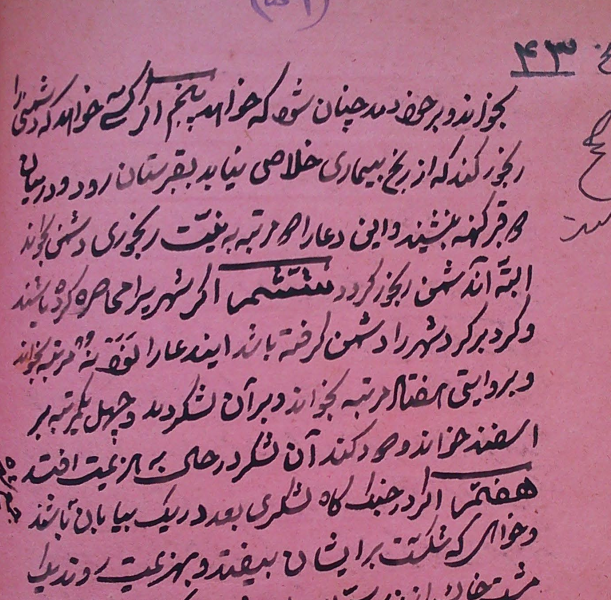 ۴۳
بخواند و بر خود دمد چنان شود که خواهد پنجم اگر کسی خواهد که دشمنی را
رنجور کند که از رنج بیماری خلاصی نیابد بقبرستان رود و درمیان
دو قبر کهنه بنشیند و این دعا را مرتبه به نیت رنجوری دشمن بخواند
البته آن دشمن رنجور گردد ششم اگر شهریرا محاصره کرده باشند
و گرد بر گرد شهر را دشمن گرفته باشد این دعا را مرتبه بخواند
و بروایتی هفتاد مرتبه بخواند و بر آن لشکر دمد و چهل یکمرتبه بر
اسفند خواند و دود کند آن لشکر در حال به هزیمت افتد
هفتم اگر در جنگ گاه لشکری بعدد ریگ بیابان باشد
و خواهی که شکست بر ایشان بیفتد و بهزیمت روند یک
مشت خاک